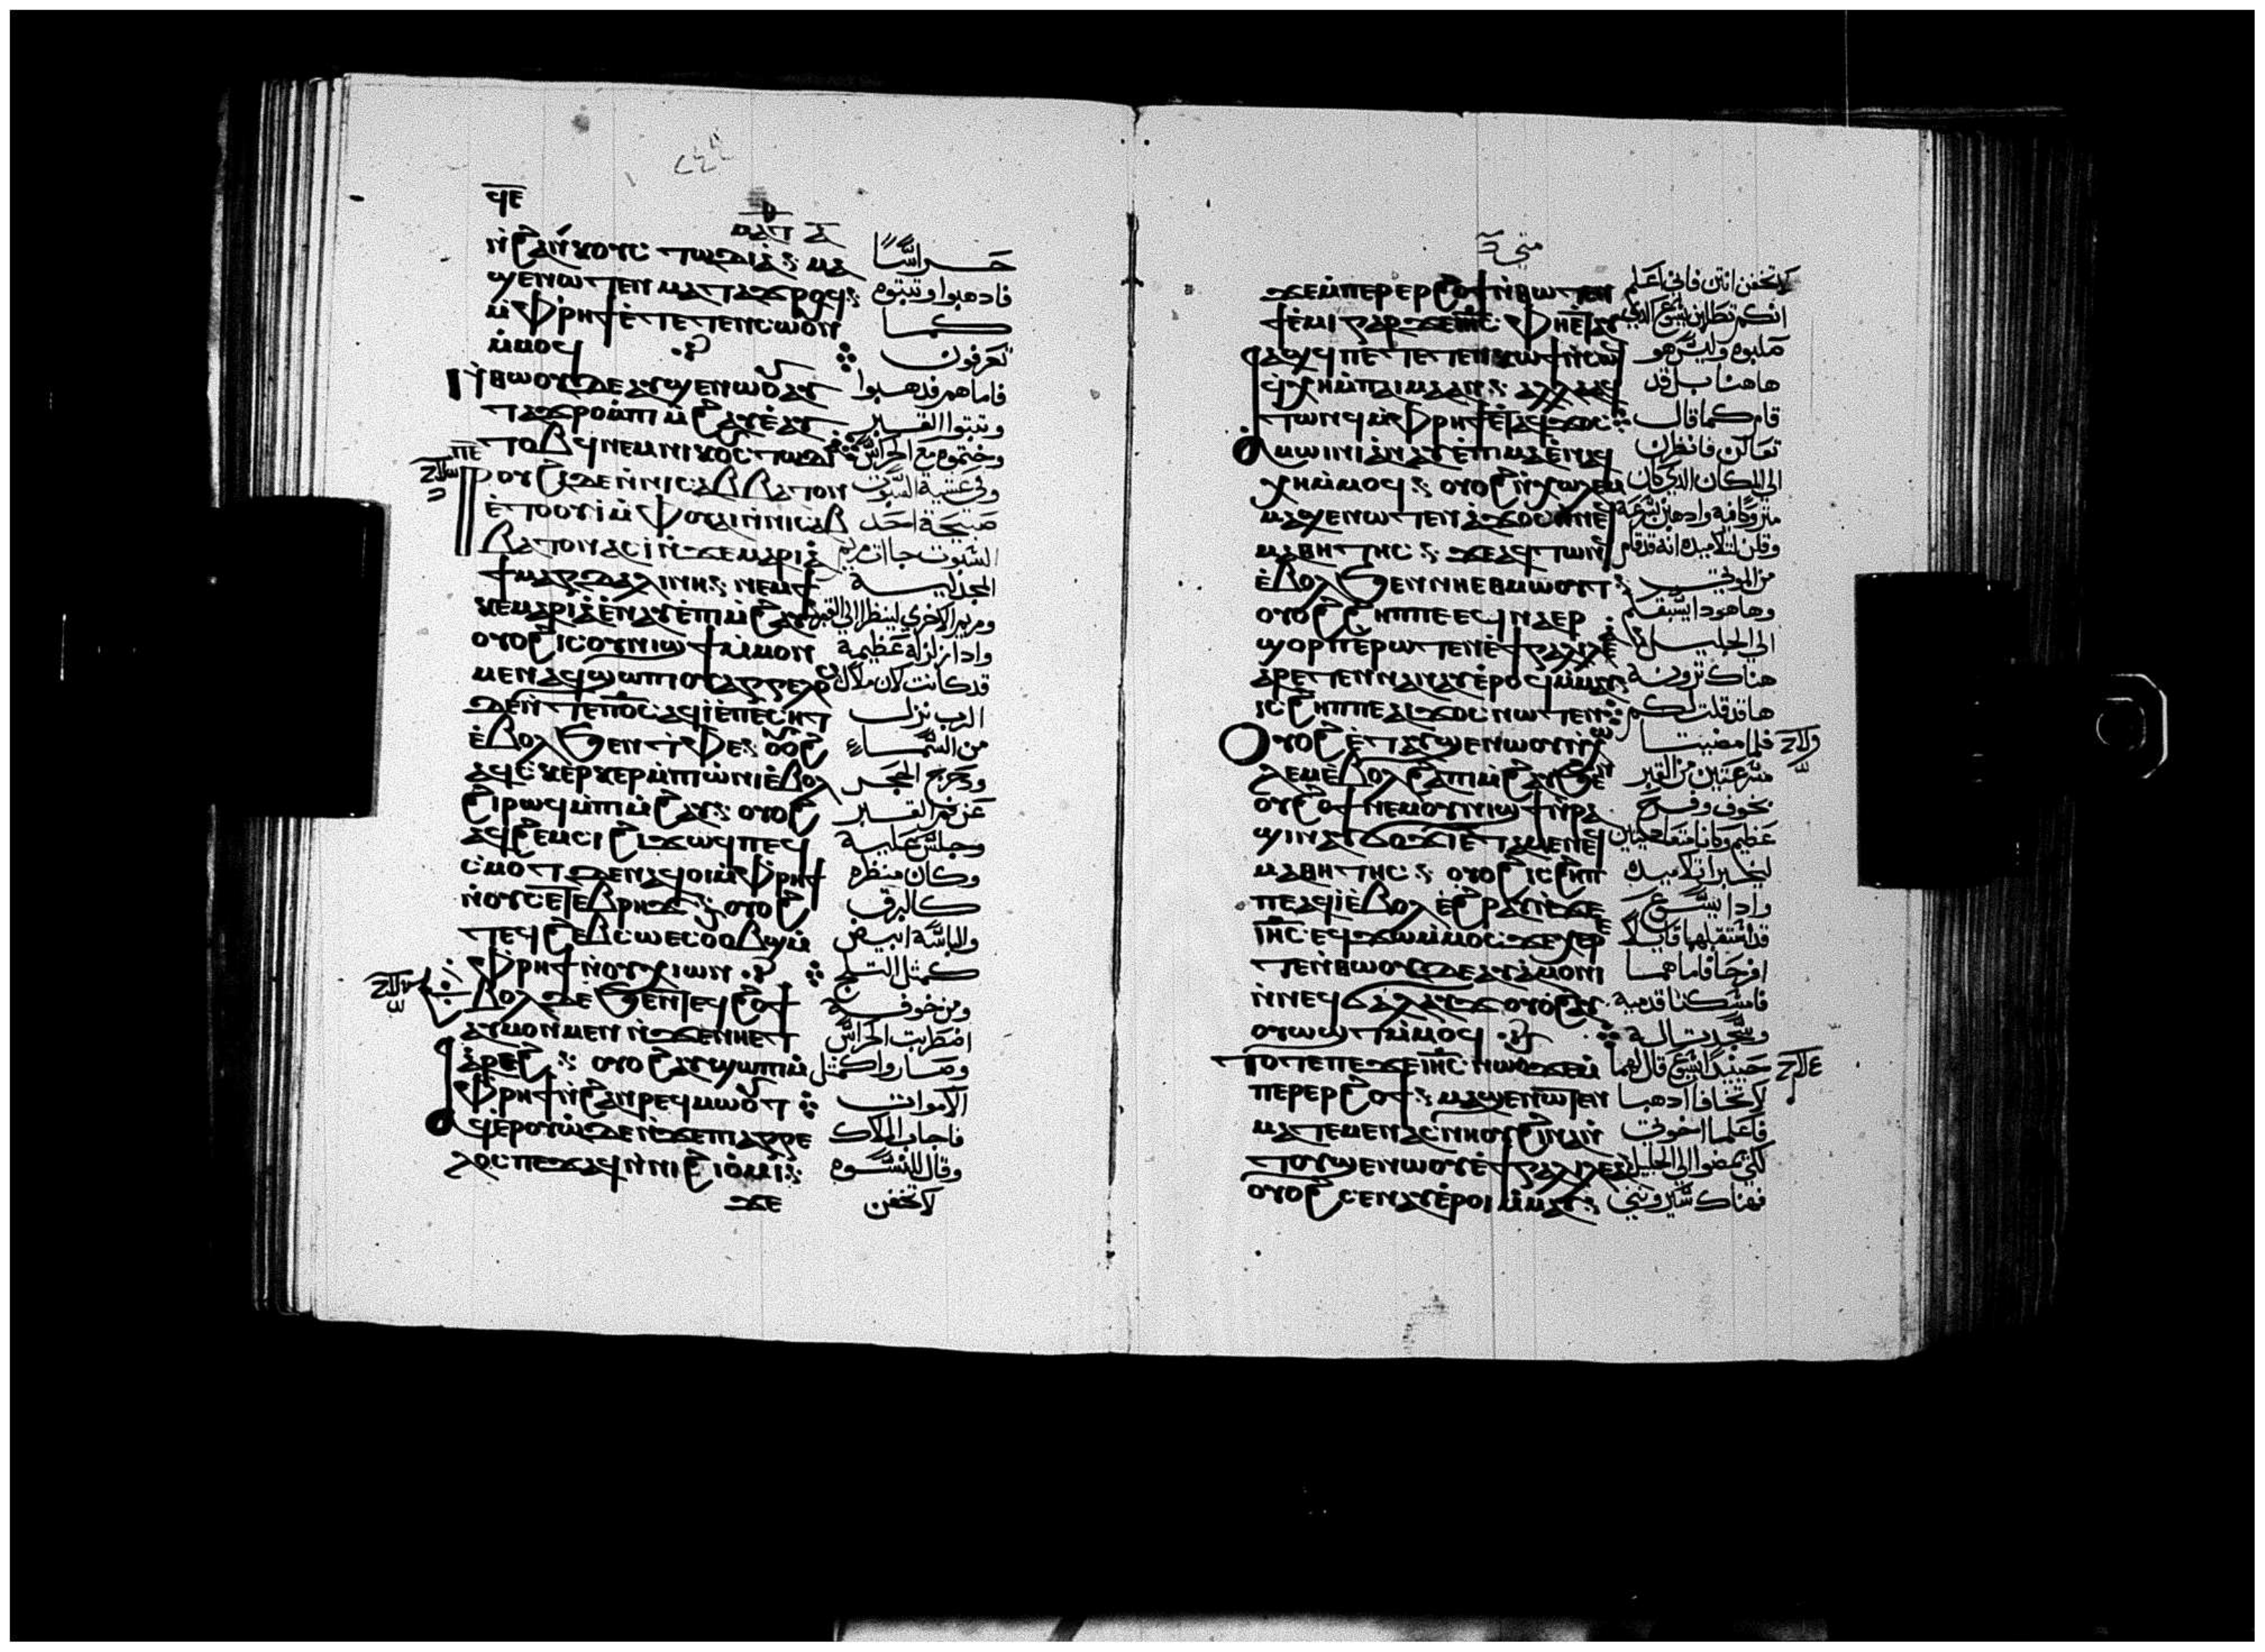 ϥⲉ
ⲛ̀ϩⲁⲛⲕⲟⲩⲥⲧⲱⲇⲓⲁ ⲙⲁ حراسًا
ϣⲉⲛⲱⲧⲉⲛ ⲙⲁⲧⲁϫⲣⲟϥ فادهبوا وتبتوه
ⲙ̀ⲫⲣⲏϯ ⲉ̀ⲧⲉⲧⲉⲛⲥⲱⲟⲩⲛ كما
ⲙ̀ⲙⲟϥ تعرفون
ⲛ̀ⲑⲱⲟⲩ ⲇⲉ ⲁⲩϣⲉⲛⲱⲟⲩ ⲁⲩ فاما هم فدهبوا
ⲧⲁϫⲣⲟ ⲙ̀ⲡⲓⲙ̀ϩⲁⲩ ⲉ̀ⲁⲩ وتبتوا القبر
ⲧⲟⲃϥ ⲛⲉⲙ ⲛⲓⲕⲟⲥⲧⲱⲇⲓⲁ وختموه مع الحراس
ⲣⲟⲩϩⲓ ⲇⲉ ⲛ̀ⲛⲓⲥⲁⲃⲃⲁⲧⲟⲛ وفي عشية السبوت
ⲉ̀ⲧⲟⲟⲩⲓ̀ ⲙ̀ⲫⲟⲩⲁⲓ ⲛ̀ⲛⲓⲥⲁⲃ صبيحة احد
ⲃⲁⲧⲟⲛ ⲁⲥⲓ̀ ⲛ̀ϫⲉ ⲙⲁⲣⲓⲁ السبوت جاات مريم
ϯⲙⲁⲅⲇⲁⲗⲓⲛⲏ ⲛⲉⲙ ϯ المجدلية
ⲕⲉⲙⲁⲣⲓⲁ ⲉ̀ⲛⲁⲩ ⲉ̀ⲡⲓⲙ̀ϩⲁⲩ ومريم الاخري لينظرا الي القبر
ⲟⲩⲟϩ ⲓⲥ ⲟⲩⲛⲓϣϯ ⲙ̀ⲙⲟⲛ وادا زلزلة عظيمة
ⲙⲉⲛ ⲁϥϣⲱⲡⲓ ⲟⲩⲁⲅⲅⲉⲗⲟ قد كانت لان ملاك
ⲇⲉⲛ̀ⲧⲉ ⲡⲟ̅ⲥ̅ ⲁϥⲓ̀ ⲉ̀ⲡⲉⲥⲏⲧ الرب نزل
ⲉ̀ⲃⲟⲗϧⲉⲛ ⲧ̀ⲫⲉ ⲟⲩⲟϩ من السما
ⲁϥⲥⲕⲉⲣⲕⲉⲣ ⲙ̀ⲡⲓⲱ̀ⲛⲓ ⲉ̀ⲃⲟⲗ ودحرج الحجر
ϩⲓⲣⲱϥ ⲙ̀ⲡⲓⲙ̀ϩⲁⲩ ⲟⲩⲟϩ عن فم القبر
ⲁϥϩⲉⲙⲥⲓ ϩⲓϫⲱϥ ⲡⲉϥ وجلس عليه
ⲥⲙⲟⲧ ⲇⲉ ⲛⲁϥⲟⲓ ⲙ̀ⲫⲣⲏϯ وكان منظره
ⲛ̀ⲟⲩⲥⲉⲧⲉⲃⲣⲏϫ ⲟⲩⲟϩ كالبرق
ⲧⲉϥϩⲉⲃⲥⲱ ⲉⲥⲟⲩⲟⲃϣ ⲙ̀ ولباسه ابيض
ⲫⲣⲏϯ ⲛ̀ⲟⲩⲭⲓⲱⲛ كمثل الثلج
ⲉⲃⲟⲗ ⲇⲉ ϧⲉⲛ ⲧⲉϥϩⲟϯ ومن خوفه
ⲁⲩⲙⲟⲛⲙⲉⲛ ⲛ̀ϫⲉ ⲛⲏⲉⲧ اضطربت الحراس
ⲁ̀ⲣⲉϩ ⲟⲩⲟϩ ⲁⲩϣⲱⲡⲓ ⲙ̀ وصاروا كمثل
ⲫⲣⲏϯ ⲛ̀ϩⲁⲛⲣⲉϥⲙⲱⲟⲩⲧ الاموات
ⲁϥⲉ̀ⲣⲟⲩⲱ̀ ⲇⲉ ⲛ̀ϫⲉ ⲡⲓⲁⲅⲅⲉ فاجاب الملاك
ⲗⲟⲥ ⲡⲉϫⲁϥ ⲛ̀ⲛⲓϩⲓⲟ̀ⲙⲓ وقال للنسوه
ϫⲉ لا تخفن
متي
ϫⲉ ⲙ̀ⲡⲉⲣⲉⲣϩⲟϯ ⲛ̀ⲑⲱⲧⲉⲛ لا تخفن انتن فاني اعلم
ϯⲉ̀ⲙⲓ ⲅⲁⲣ ϫⲉ ⲓⲏ̅ⲥ̅ ⲫⲏⲉⲧⲁⲩ انكم تطلبن يسوع الدي
ⲁϣϥ ⲡⲉ ⲧⲉⲧⲉⲛⲕⲱϯ ⲛ̀ⲥⲱ صلبوه وليس هو
ϥ ϥ̀ⲭⲏ ⲙ̀ⲡⲁⲓⲙⲁ ⲁⲛ ⲁⲗⲗⲁ ⲁϥ هاهنا بل قد
ⲧⲱⲛϥ ⲙ̀ⲫⲣⲏϯ ⲉ̀ⲧⲁϥϫⲟⲥ قام كما قال
ⲁ̀ⲙⲱⲓⲛⲓ ⲁ̀ⲛⲁⲩ ⲉ̀ⲡⲓⲙⲁ ⲉ̀ⲛⲁϥ تعالن فانظرن
ⲭⲏ ⲙ̀ⲙⲟϥ ⲟⲩⲟϩ ⲛ̀ⲭⲱⲗⲉⲙ الي المكان الدي كان
ⲙⲁϣⲉⲛⲱⲧⲉⲛ ⲁ̀ϫⲟⲥ ⲛ̀ⲛⲉϥ متروكا فيه وادهبن بسرعة
ⲙⲁⲑⲏⲧⲏⲥ ϫⲉ ⲁϥⲧⲱⲛϥ وقلن لتلاميده انه قد قام
ⲉ̀ⲃⲟⲗϧⲉⲛ ⲛⲏⲉⲑⲙⲱⲟⲩⲧ من الموتي
ⲟⲩⲟϩ ϩⲏⲡⲡⲉ ⲉϥⲛⲁⲉⲣ وها هودا يسبقكم
ϣⲟⲣⲡ ⲉ̀ⲣⲱⲧⲉⲛ ⲉ̀ϯⲅⲁⲗⲓⲗⲉⲁ الي الجليل
ⲁ̀ⲣⲉⲧⲉⲛⲛⲁⲛⲁⲩ ⲉ̀ⲣⲟϥ ⲙ̀ⲙⲁⲩ هناك ترونه
ⲓⲥ ϩⲏⲡⲡⲉ ⲁⲓϫⲟⲥ ⲛⲱⲧⲉⲛ ها قد قلت لكم
ⲟⲩⲟϩ ⲉ̀ⲧⲁⲩϣⲉⲛⲱⲟⲩ ⲛ̀ⲭⲱ فلما مضيتا
ⲗⲉⲙ ⲉ̀ⲃⲟⲗϩⲁ ⲡⲓⲙ̀ϩⲁⲩ ϧⲉⲛ مسرعتين من القبر
ⲟⲩϩⲟϯ ⲛⲉⲙ ⲟⲩⲛⲓϣϯ ⲛ̀ⲣⲁ بخوف وفرح
ϣⲓ ⲛⲁⲩϭⲟϫⲓ ⲉ̀ⲧⲁⲙⲉ ⲛⲉϥ عظيم وكانا
ⲙⲁⲑⲏⲧⲏⲥ ⲟⲩⲟϩ ⲓⲥ ϩⲏⲡ ليخبرا تلاميده
ⲡⲉ ⲁϥⲓ̀ ⲉ̀ⲃⲟⲗ ⲉ̀ϩⲣⲁⲩ ⲛ̀ϫⲉ وادا يسوع
ⲓⲏ̅ⲥ̅ ⲉϥϫⲱ ⲙ̀ⲙⲟⲥ ϫⲉ ⲭⲉⲣ قد استقبلهما قايلا
ⲧⲉ ⲛ̀ⲑⲱⲟⲩ ⲇⲉ ⲁⲩⲁ̀ⲙⲟⲛⲓ افرحا فاما هما
ⲛ̀ⲛⲉϥϭⲁⲗⲁⲩϫ ⲟⲩⲟϩ ⲁⲩ فامسكتا قدميه
ⲟⲩⲱϣⲧ ⲙ̀ⲙⲟϥ وسجدتا له
ⲧⲟⲧⲉ ⲡⲉϫⲉ ⲓⲏ̅ⲥ̅ ⲛⲱⲟⲩ ϫⲉ ⲙ̀ حينيد يسوع قال لهما
ⲡⲉⲣⲉⲣϩⲟϯ ⲙⲁϣⲉⲛⲱⲧⲉⲛ لا تخافا ادهبا
ⲙⲁⲧⲁⲙⲉ ⲛⲁⲥⲛⲏⲟⲩ ϩⲓⲛⲁ ⲛ̀ فاعلما اخوتي
ⲧⲟⲩϣⲉⲛⲱⲟⲩ ⲉ̀ϯⲅⲁⲗⲓⲗⲉⲁ لكي يمضوا الي الجليل
ⲟⲩⲟϩ ⲥⲉⲛⲁⲛⲁⲩ ⲉ̀ⲣⲟⲓ ⲙ̀ⲙⲁⲩ فهناك سيرونني